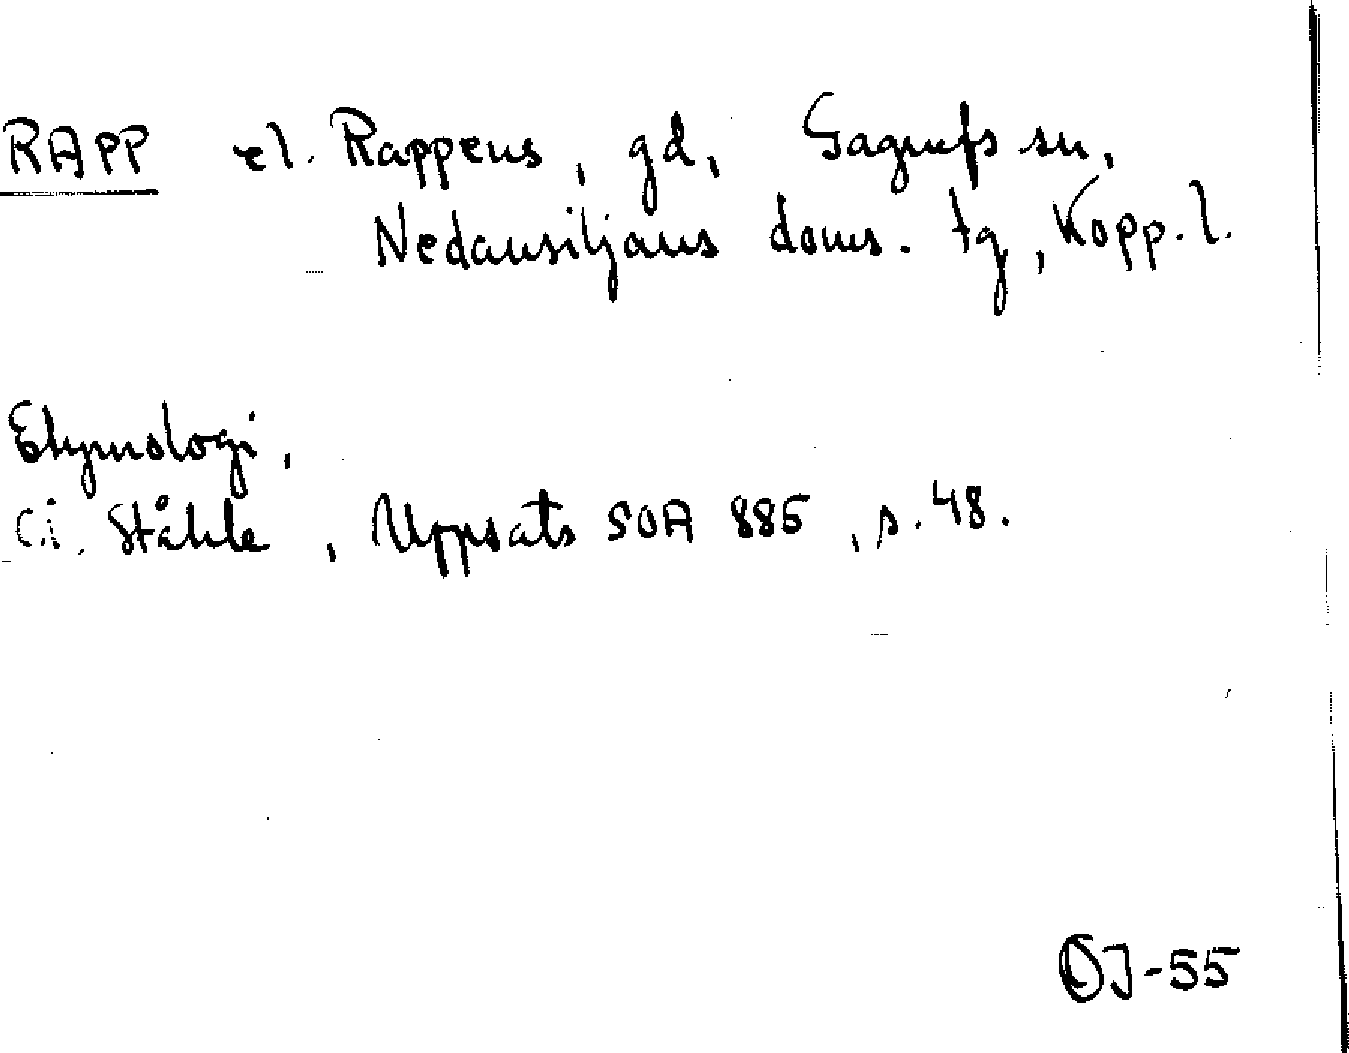 RAPP el. Rappens, gd, Gagnefs sn,
Nedansiljans doms. tg, Kopp. l.
Etymologi,
C.i. Ståhle, Uppsats SOA 885, s. 48.
OJ-55